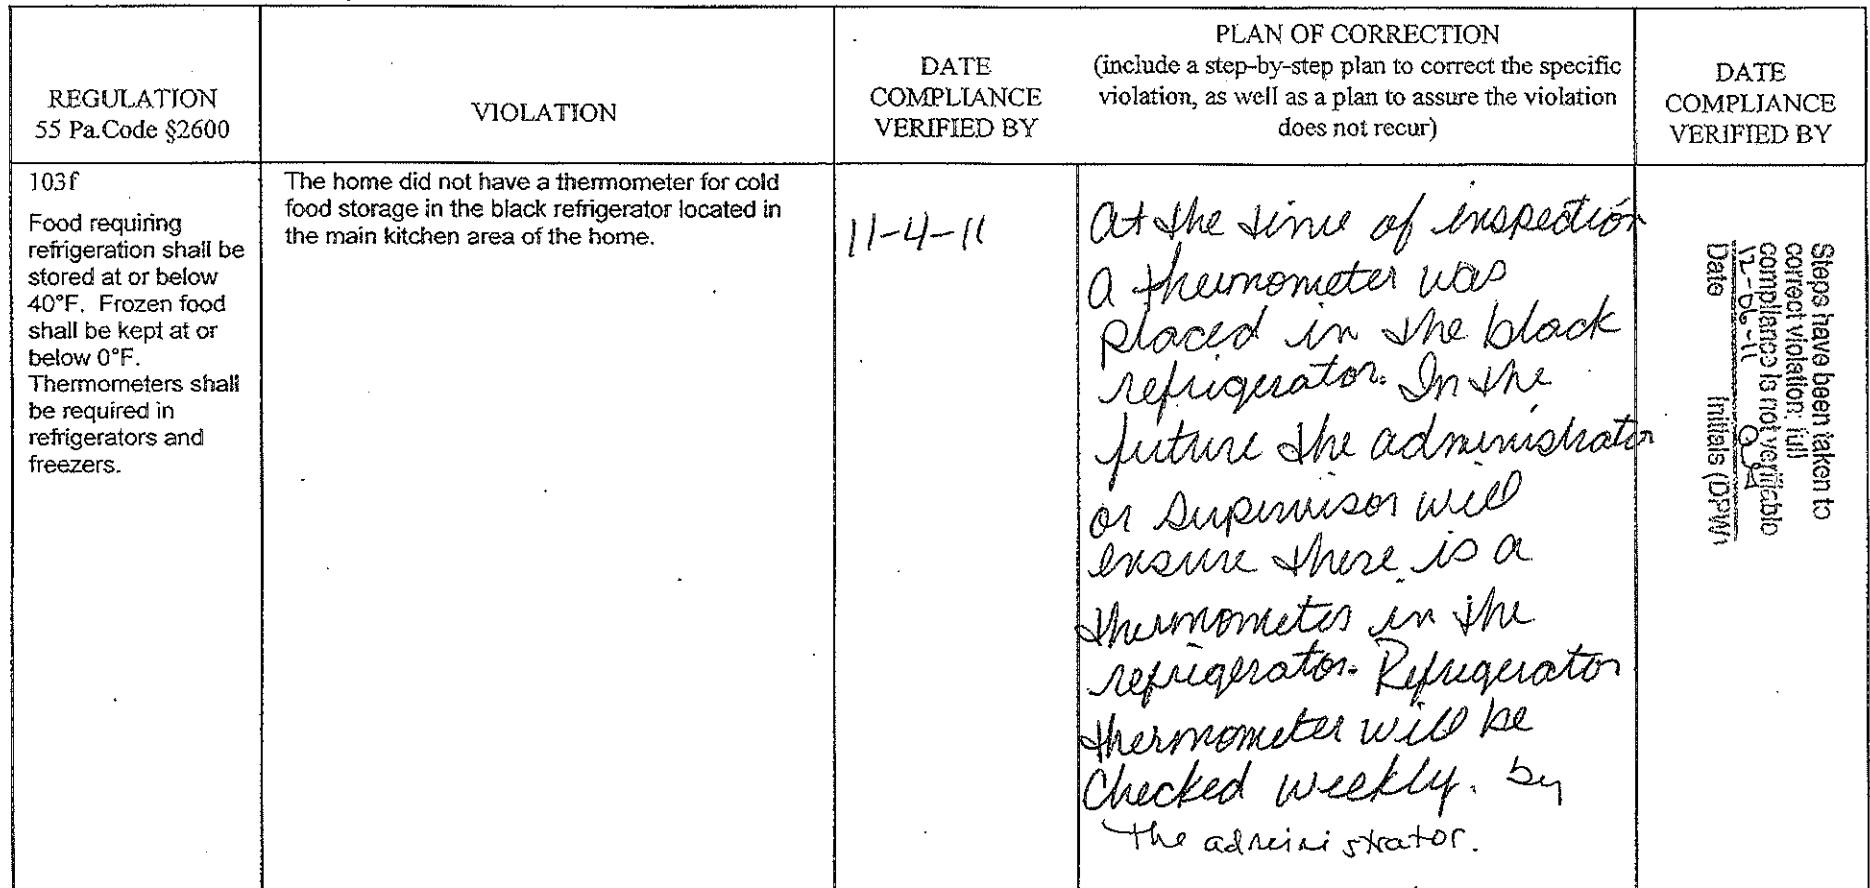 REGULATION
55 Pa.Code §2600
VIOLATION
DATE
COMPLIANCE
VERIFIED BY
PLAN OF CORRECTION
(include a step-by-step plan to correct the specific
violation, as well as a plan to assure the violation
does not recur)
DATE
COMPLIANCE
VERIFIED BY
103f
Food requiring
refrigeration shall be
stored at or below
40°F. Frozen food
shall be kept at or
below 0°F.
Thermometers shall
be required in
refrigerators and
freezers.
The home did not have a thermometer for cold
food storage in the black refrigerator located in
the main kitchen area of the home.
11-4-11
At the time of inspection
a thermometer was
placed in the black
refrigerator. In the
future the administrator
or supervisor will
ensure there is a
thermometer in the
refrigerator. Refrigerator
thermometer will be
checked weekly. by
the administrator.
Steps have been taken to
correct violation; full
compliance is not verifiable
12-06-11
Date Initials (DPW)